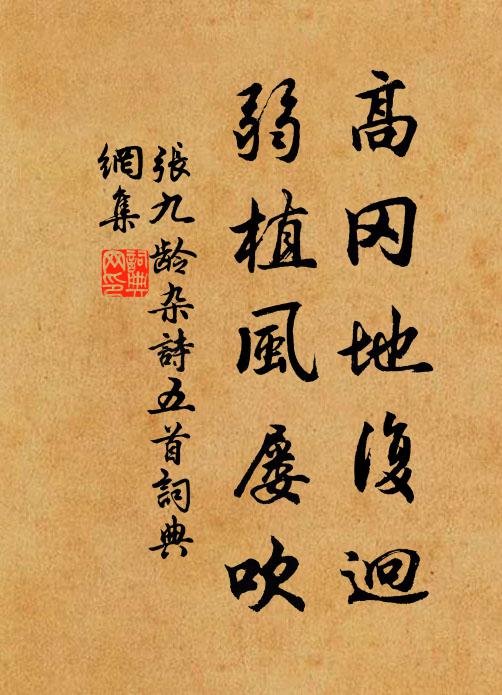 高冈地復迥
弱植風屡吹
張九龄杂詩五首詞典
網集
詞典
网印